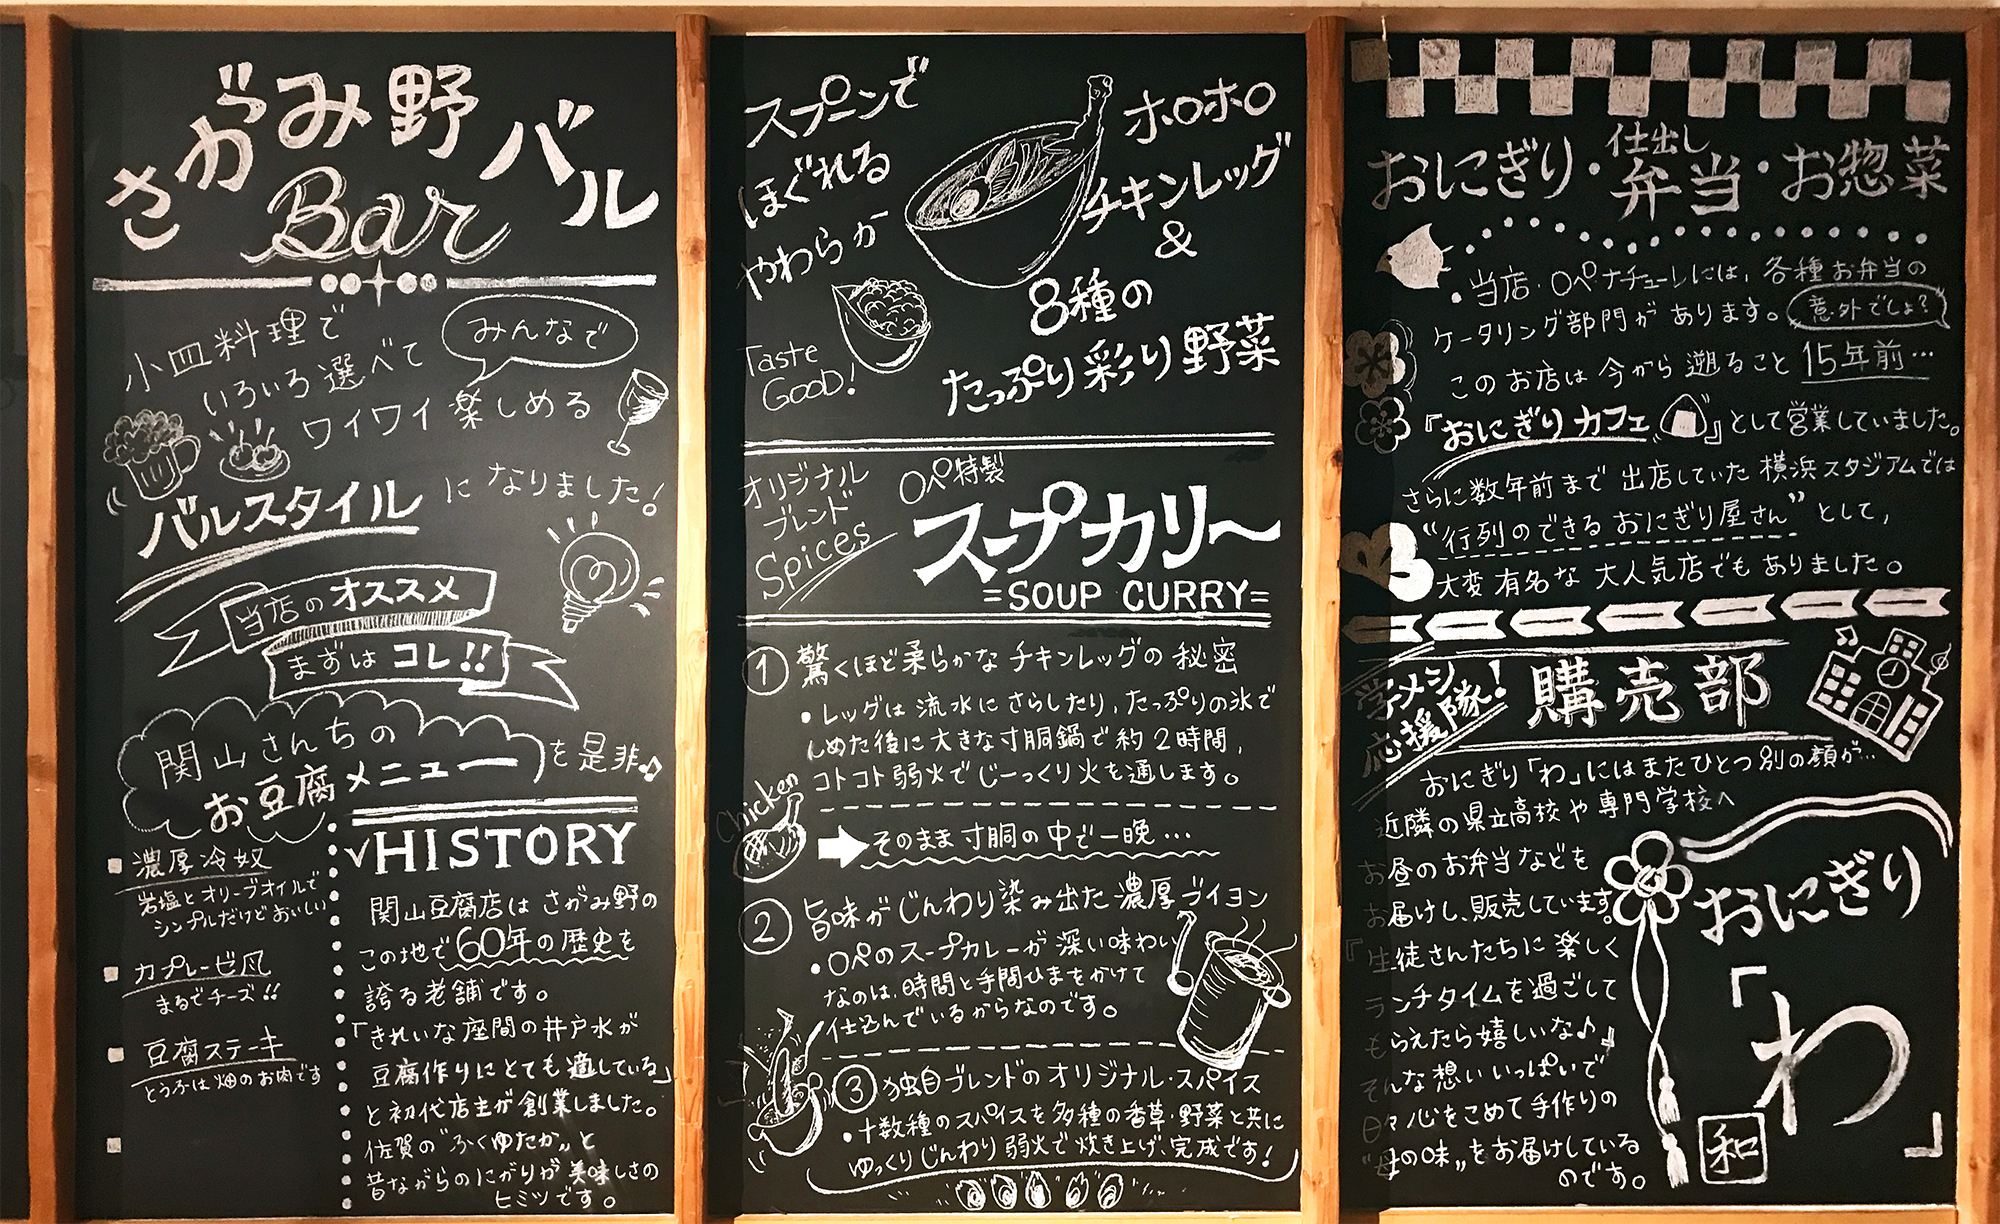 さがみ野バル
Bar
小皿料理で
いろいろ選べて
みんなで
ワイワイ楽しめる
バルスタイル になりました!
当店のオススメ
まずは コレ!!
関山さんちの
お豆腐メニュー を是非♪
濃厚冷奴
岩塩とオリーブオイルで
シンプルだけどおいしい
カプレーゼ風
まるでチーズ!!
豆腐ステーキ
とうふは畑のお肉です
√HISTORY
関山豆腐店は さがみ野の
この地で60年の歴史を
誇る老舗です。
「きれいな座間の井戸水が
豆腐作りにとても適している」
と初代店主が創業しました。
佐賀の“ふくゆたか„と
昔ながらのにがりが美味しさの
ヒミツです。
スプーンで
ほぐれる
やわらか
ホロホロ
チキンレッグ
&
8種の
たっぷり彩り野菜
Taste
GOOD!
オリジナル
ブレンド
Spices
ロペ特製
スープカリ〜
=SOUP CURRY=
① 驚くほど柔らかなチキンレッグの秘密
・レッグは流水にさらしたり、たっぷりの氷で
しめた後に大きな寸胴鍋で約2時間、
コトコト弱火でじーっくり火を通します。
Chicken
そのまま寸胴の中で一晩…
② 旨味がじんわり染み出た濃厚ブイヨン
・ロペのスープカレーが深い味わい
なのは、時間と手間ひまをかけて
仕込んでいるからなのです。
③ 独自ブレンドのオリジナル・スパイス
・十数種のスパイスを多種の香草・野菜と共に
ゆっくりじんわり弱火で炊き上げ、完成です!
おにぎり・仕出し弁当・お惣菜
・当店・ロペナチューレには、各種お弁当の
ケータリング部門があります。意外でしょ?
このお店は今から遡ること15年前…
『おにぎりカフェ』として営業していました。
さらに数年前まで出店していた横浜スタジアムでは
“行列のできるおにぎり屋さん”として、
大変有名な大人気店でもありました。
学メシ
応援隊!
購売部
おにぎり「わ」にはまたひとつ別の顔が…
近隣の県立高校や専門学校へ
お昼のお弁当などを
お届けし、販売しています。
『生徒さんたちに楽しく
ランチタイムを過ごして
もらえたら嬉しいな♪』
そんな想いいっぱいで
日々心をこめて手作りの
“母の味„をお届けしている
のです。
おにぎり
「わ」
和